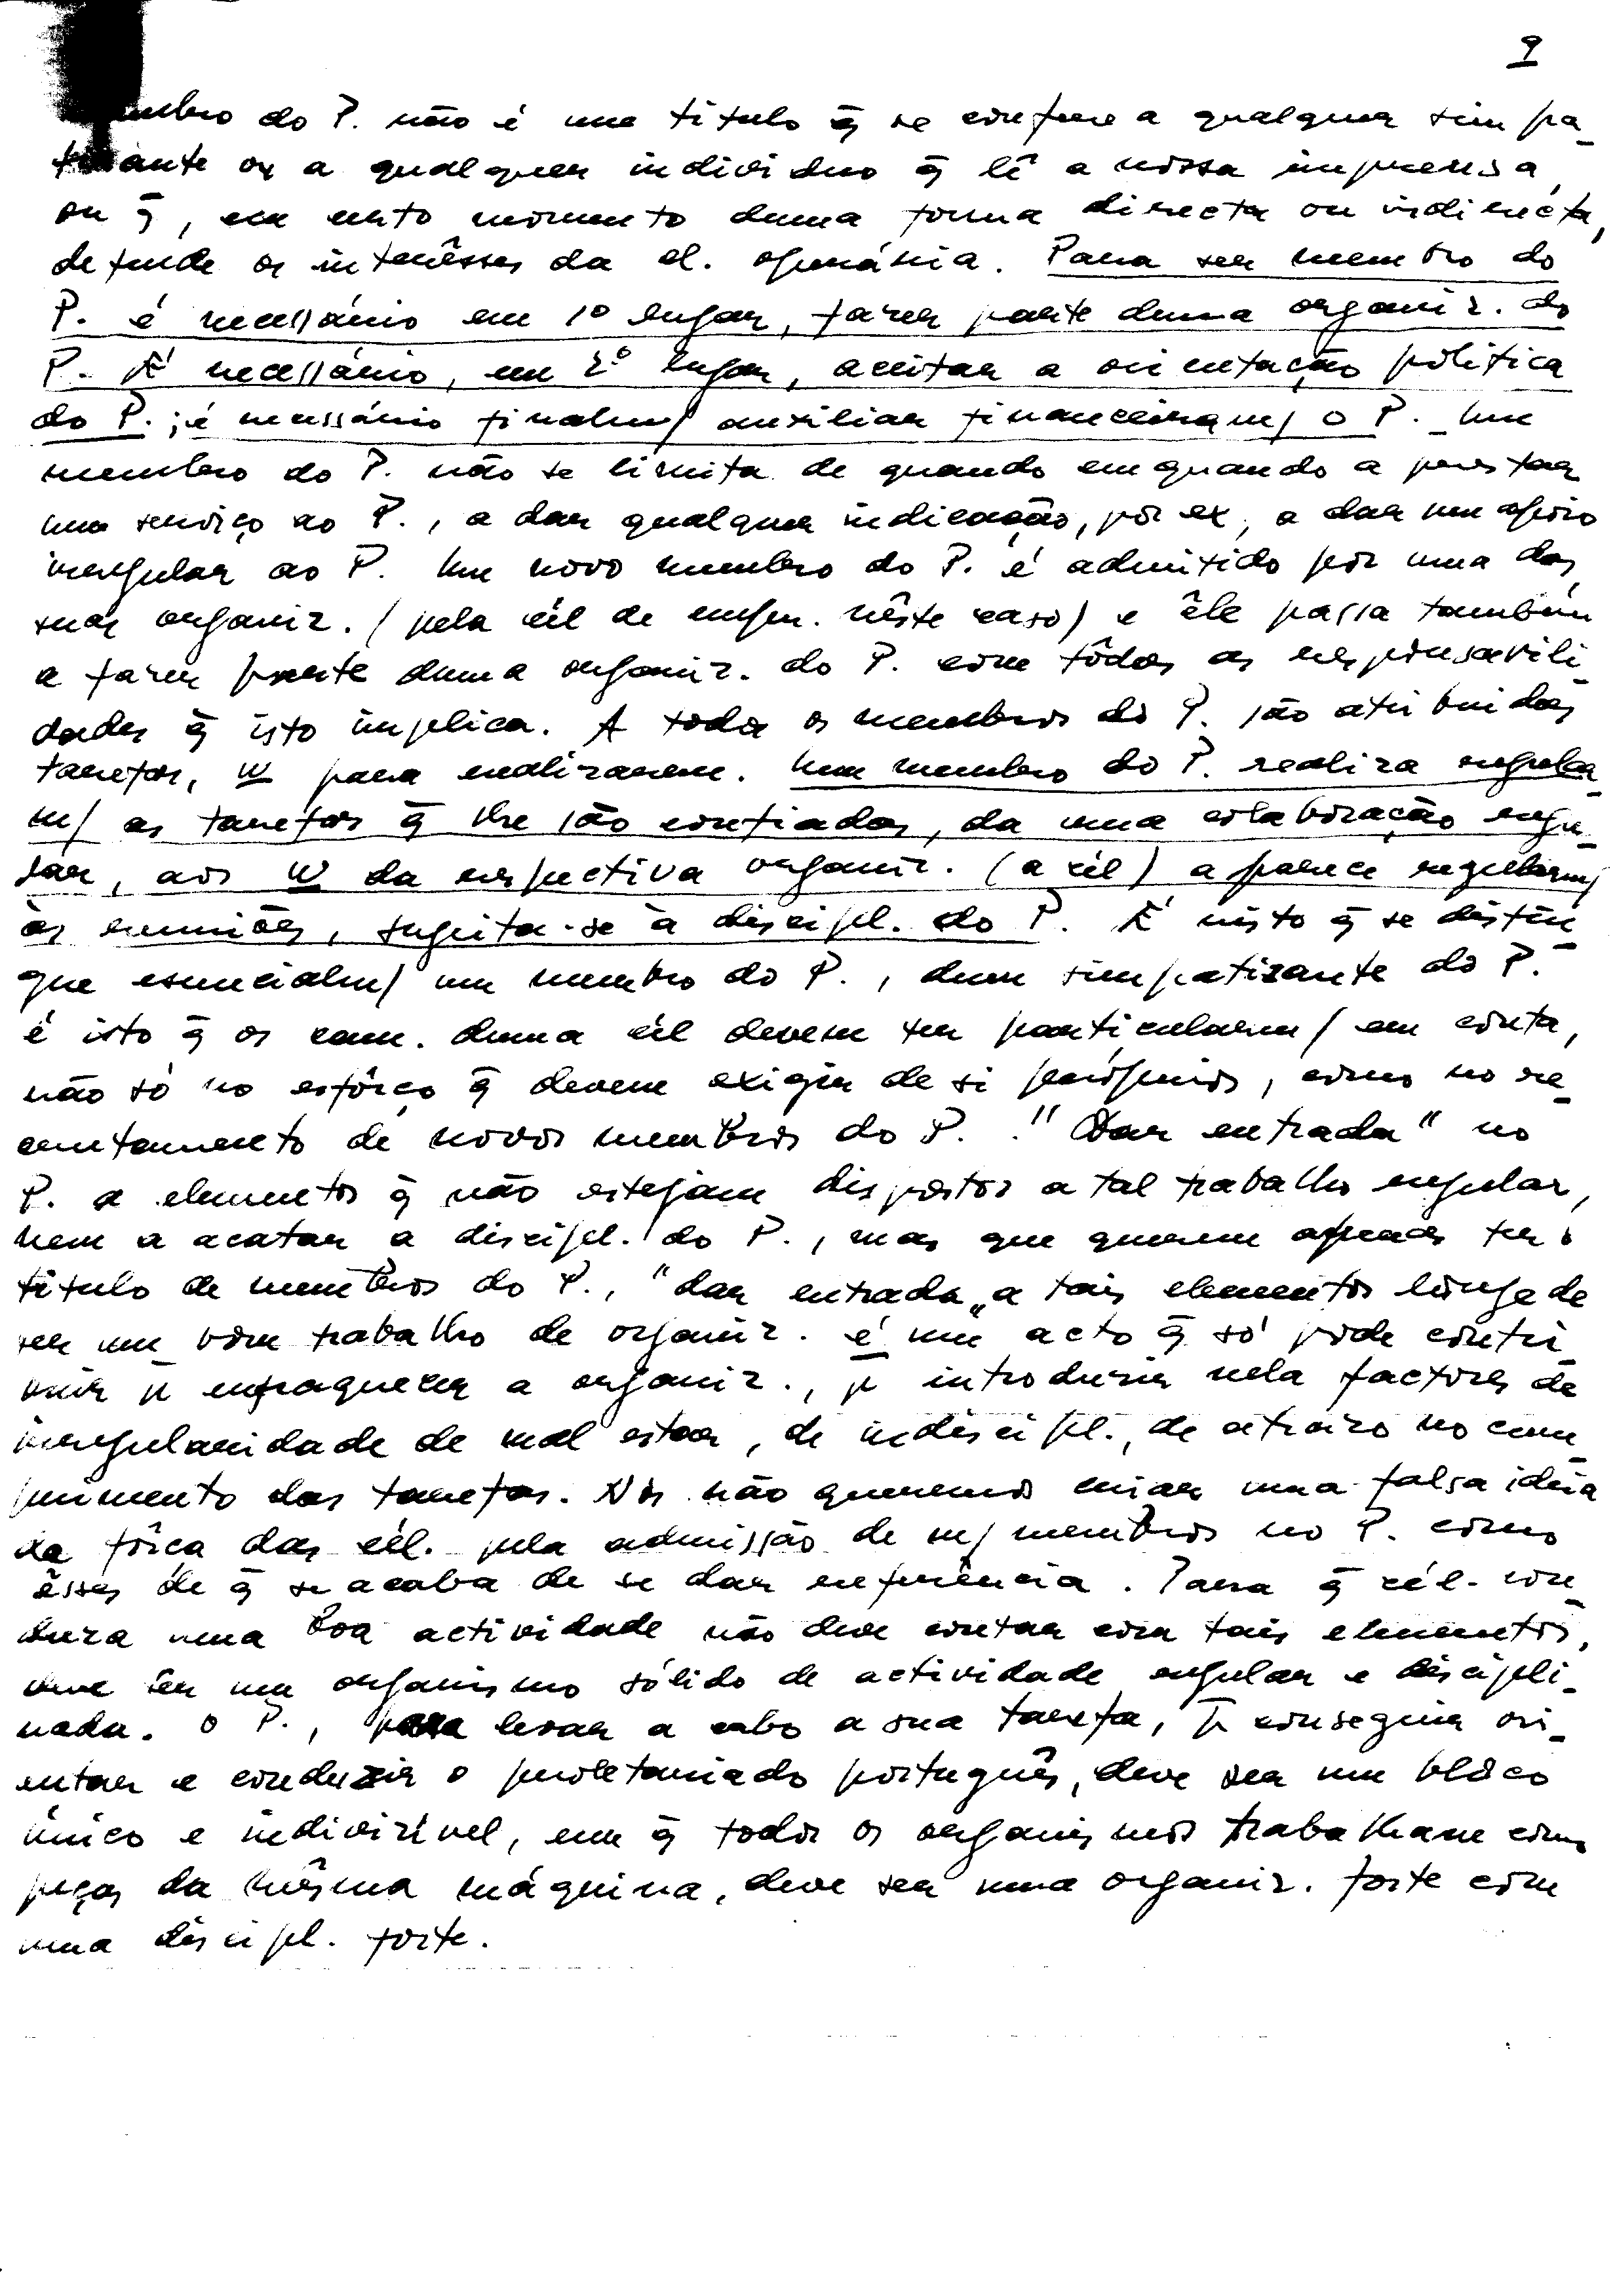 9
mbro do P. não é um título q̃ se confere a qualquer simpa-
tizante ou a qualquer individuo q̃ lê a nossa imprensa,
ou q̃, em certo momento duma forma directa ou indirecta,
defende os interêsses da cl. operária. Para ser membro do
P. é necessário em 1º lugar, fazer parte duma organiz. do
P. É necessário, em 2º lugar, aceitar a orientação politica
do P.; é necessário finalm/ auxiliar financeiram/ o P. Um
membro do P. não se limita de quando em quando a prestar
um serviço ao P., a dar qualquer indicação, por ex, a dar um apoio
irregular ao P. Um novo membro do P. é admitido por uma das
suas organiz. (pela cél de empr. nêste caso) e êle passa também
a fazer parte duma organiz. do P. com tôdas as responsabili-
dades q̃ isto implica. A todos os membros do P. são atribuidas
tarefas, W para realizarem. Um membro do P. realiza regular-
m/ as tarefas q̃ lhe são confiadas, da uma colaboração regu-
lar, aos W da respectiva organiz. (a cél) aparece regularm/
às reuniões, sugeita-se à discipl. do P. É nisto q̃ se distin-
gue essencialm/ um membro do P., dum simpatizante do P.
é isto q̃ os cam. duma cél devem ter particularm/ em conta,
não só no esfôrço q̃ devem exigir de si próprios, como no re-
crutamento de novos membros do P. "Dar entrada" no
P. a elementos q̃ não estejam dispostos a tal trabalho regular,
nem a acatar a discipl. do P., mas que querem apenas ter o
título de membros do P., "dar entrada" a tais elementos longe de
ser um bom trabalho de organiz. é um acto q̃ só pode contri-
buir p̃ enfraquecer a organiz., p̃ introduzir nela factores de
irregularidade de mal estar, de indiscipl., de atraizo no cum-
primento das tarefas. Nós não queremos criar uma falsa ideia
da fôrça das cél. pela admissão de m/ membros no P. como
êsses de q̃ se acaba de se dar referência. Para q̃ cél. con-
duza uma boa actividade não deve contar com tais elementos,
deve ser um organismo sólido de actividade regular e discipli-
nada. O P., para levar a cabo a sua tarefa, p̃ conseguir ori-
entar e conduzir o proletariado português, deve ser um bloco
único e indivizível, em q̃ todos os organismos trabalham como
peças da mêsma máquina, deve ser uma organiz. forte com
uma discipl. forte.